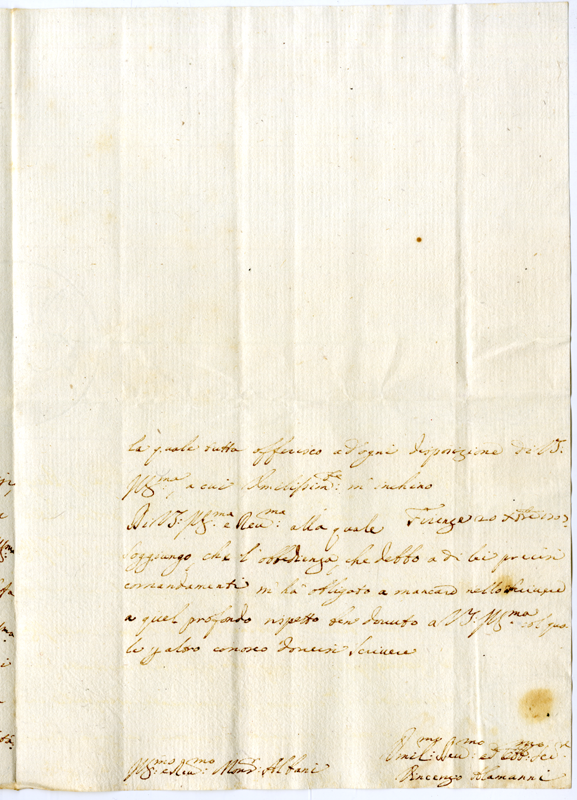 la quale tutta offerisco ad ogni disposizione di V:
Ill:ma, a cui Umilissim:te m'inchino
Di V: Ill:ma e Reu:ma alla quale Firenze 20
soggiungo che l'obbedienza, che debbo a di lei precisi
comandamenti m'ha obligato a mancare nello scriuere
a quel profondo rispetto ben douuto a V: Ill:ma col qua
le per altro conosco douersi scriuere
Ill:mo e Reu:mo Mons: Albani
Vmil:mo Deu:mo ed Obb:mo
Vincenzo Alamanni